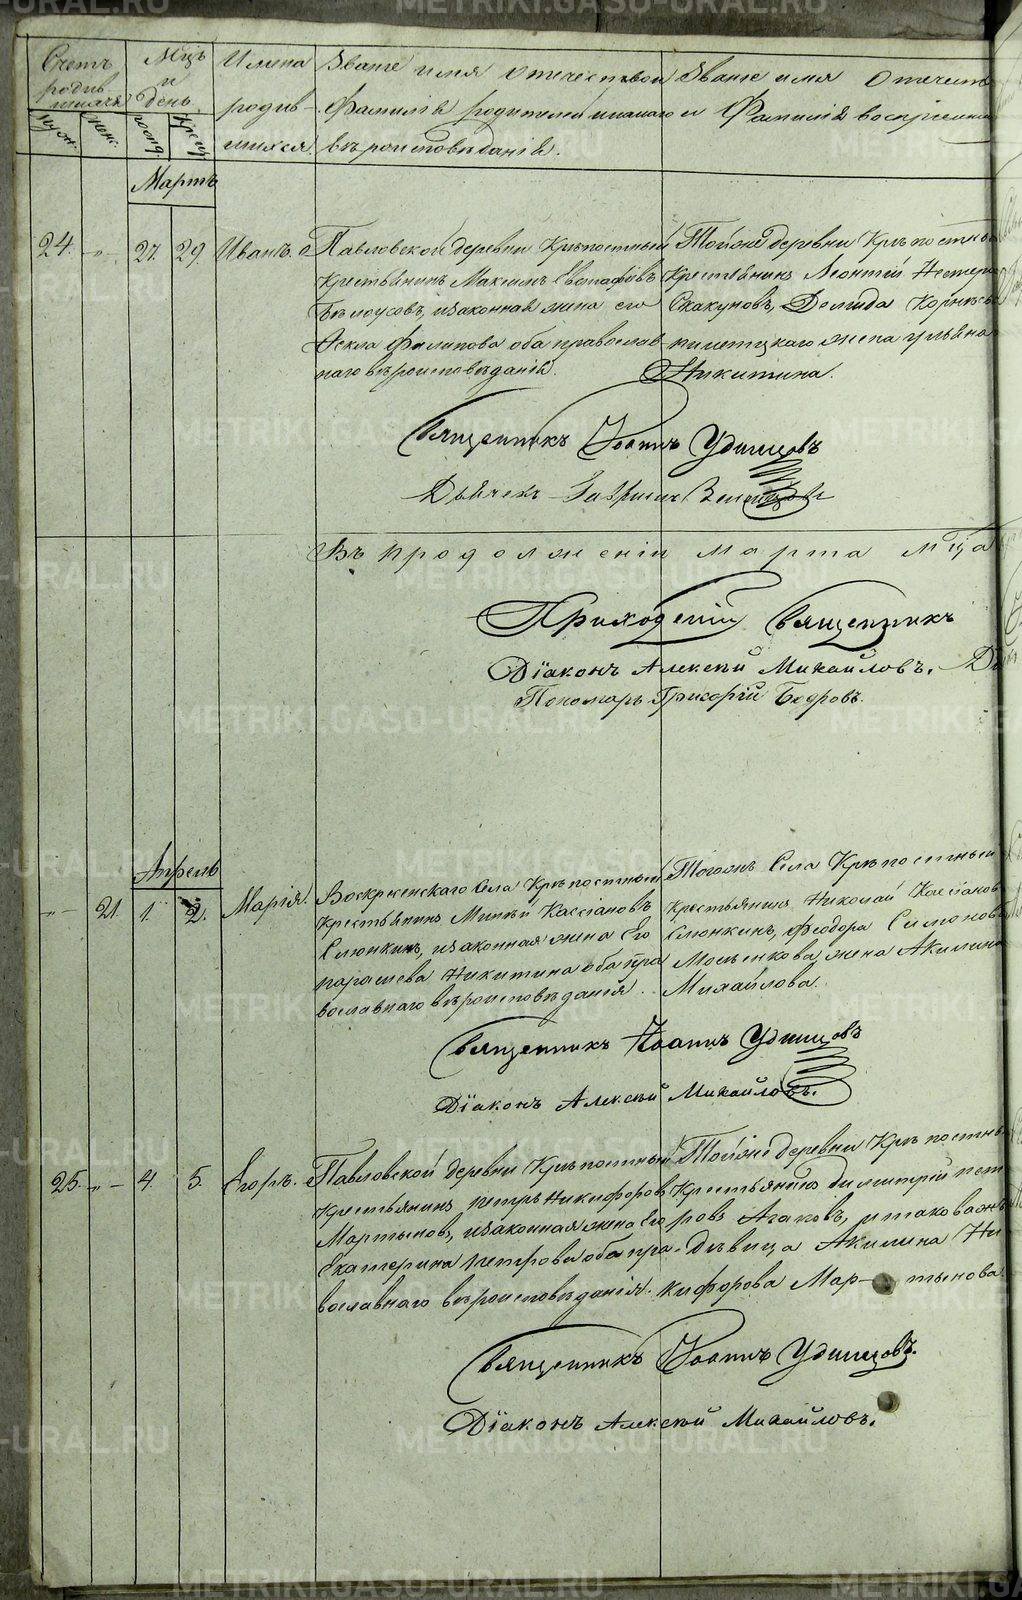 Счетъ родив шихся
Муж. Жен.
Мцъ и день.
рожд. крещ.
Имена родив-шихся.
Званіе имя отечество и
Фамилія родителей и какаго
вѣроисповѣданія.
Званіе имя отечест
и Фамилія воспріемни
Мартъ
24. „- 27. 29. Иванъ.
Павловской деревни Крѣпостный
Крестьянинъ Максимъ Евстафіевъ
Бѣлоусовъ, изаконная жена его
Ѳекла Филипова оба православ-
наго вѣроисповѣданія.
Тойже деревни Крѣпостны
Крестьянинъ Леонтій Нестеро
Скакуновъ, Демида Корнѣева
жена Ульяна
Никитина.
Священникъ Іоаннъ Удинцовъ
Дьячекъ Гавріилъ
Въ продолженіи марта мца
Приходскій Священникъ
Діаконъ Алексѣй Михайловъ.
Пономарь Григорій Бодровъ.
Апрель
„- 21 1. 2. Марія.
Воскресенскаго Села Крѣпостный
Крестьянинъ Минѣй Кассіановъ
Слюнкинъ, изаконная жена Его
Парасѣева Никитина оба пра
вославнаго вѣроисповѣданія.
Тогожъ Села Крѣпостный
Крестьянинъ Николай Кассіанов
Слюнкинъ, Феодора Симонов
жена Акилина
Михайлова.
Священникъ Іоаннъ Удинцовъ
Діаконъ Алексѣй Михайловъ.
25. „- 4. 5. Егоръ.
Павловской деревни Крѣпостный
Крестьянинъ Петръ Никифоров
Мартыновъ, изаконная жена Его
Екатерина Петрова оба пра-
вославнаго вѣроисповѣданія.
Тойже деревни Крѣпостны
Крестьянинъ Димитрій Пет
ровъ Агаповъ, итаковаяжъ
Дѣвица Акилина Ни
кифорова Мар-тынова
Священникъ Іоаннъ Удинцовъ.
Діаконъ Алексѣй Михайловъ.
METRIKI.GASO-URAL.RU